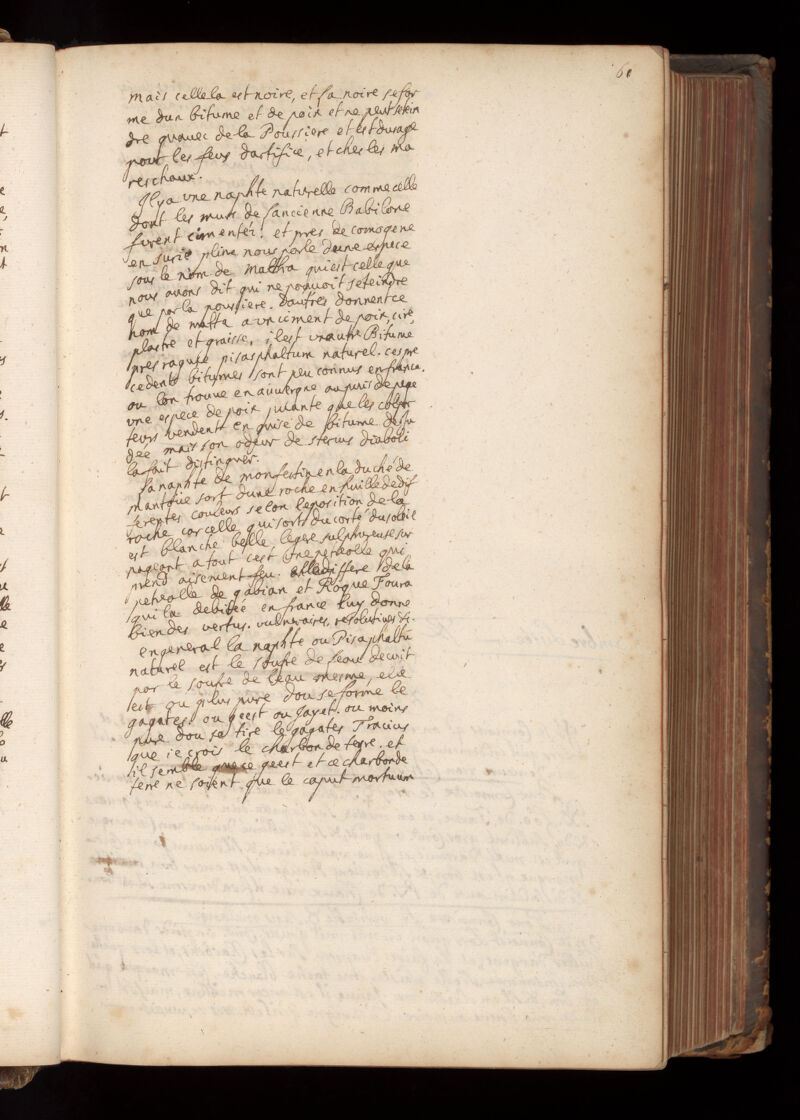 60
mais cellela est noire, et sa noire se for
me dun bitume et de poix et ne peut setein
dre quavec de la Poussiere et est dusage
pour les feux dartifice, et ches les ma
reschaux.
Il y a une naphte naturelle comme celle
dont les murs de lancienne Babilone
furent cimentéz. et pres de comogene
en surie pline nous parle dune espece
sous le nom de Maltha qui est celle que
nous avons dit qui ne pouvoit seteindre
que par la poussiere. dautres donnent ce
nom de malta a un ciment de poix, cire,
plastre et graisse, il est un autre Bitume
pres raguse pisasphaltum naturel. ces pre
cedents bitumes sont peu connus en france.
ou lon trouve en auvergne au puis de pege
une espece de poix puante que les
teurs vendent en guise de bitume de Ju
dee mais son odeur de stercus diaboli
la fait distinguer.
la naphte de monfestin en la duché de
mantoüe sort dune roche en huille de dif
ferentes couleurs selon lexposition de la
roche car celle qui sort du corté du soleil
est blanche belle legere sulphureuse sur
nageant a tout cest une petreolle qui
prend aisement feu. elle differe de la
petreolle de gabian et Roque Foura
qui la debitée en france luy donne
bien des vertus. vulneraires, resolutives &c.
en general la naphte ou Pisaphaltu
naturel est le soufre de leau decuit
par le soufre de leau mesme, elle
est ou plus pure dou se forme le
gagates ou geest ou Jayet. ou moins
pure dou se tire le gagates Tracius
que ie crois le charbon de terre. et
il semble que ce geest et ce charbon de
terre ne soient que le caput mortuum